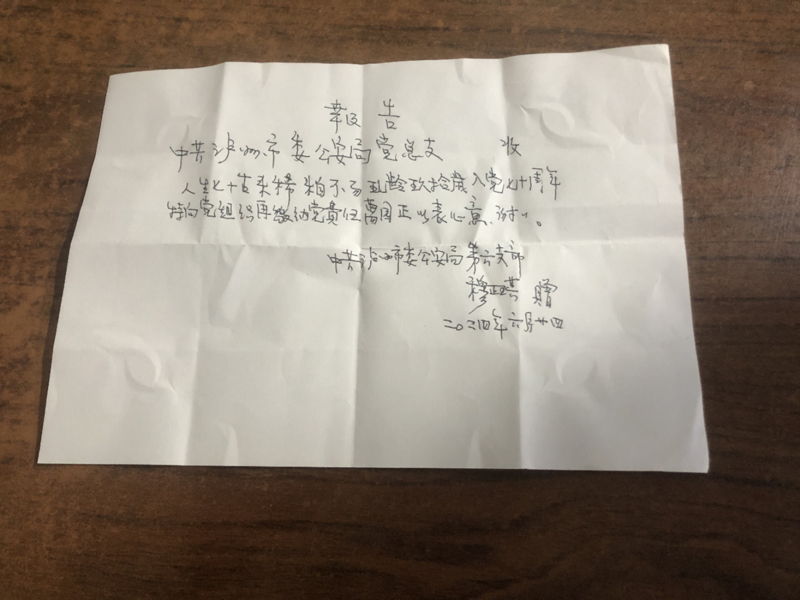 报告
中共泸州市委公安局党总支 收
人生七十古来稀 不易 龄玖拾岁入党七十周年
特向党组织再缴纳党费伍萬园正以表心意。谢谢。
中共泸州市委公安局第六支部
穆 赠
二〇二四年六月廿四